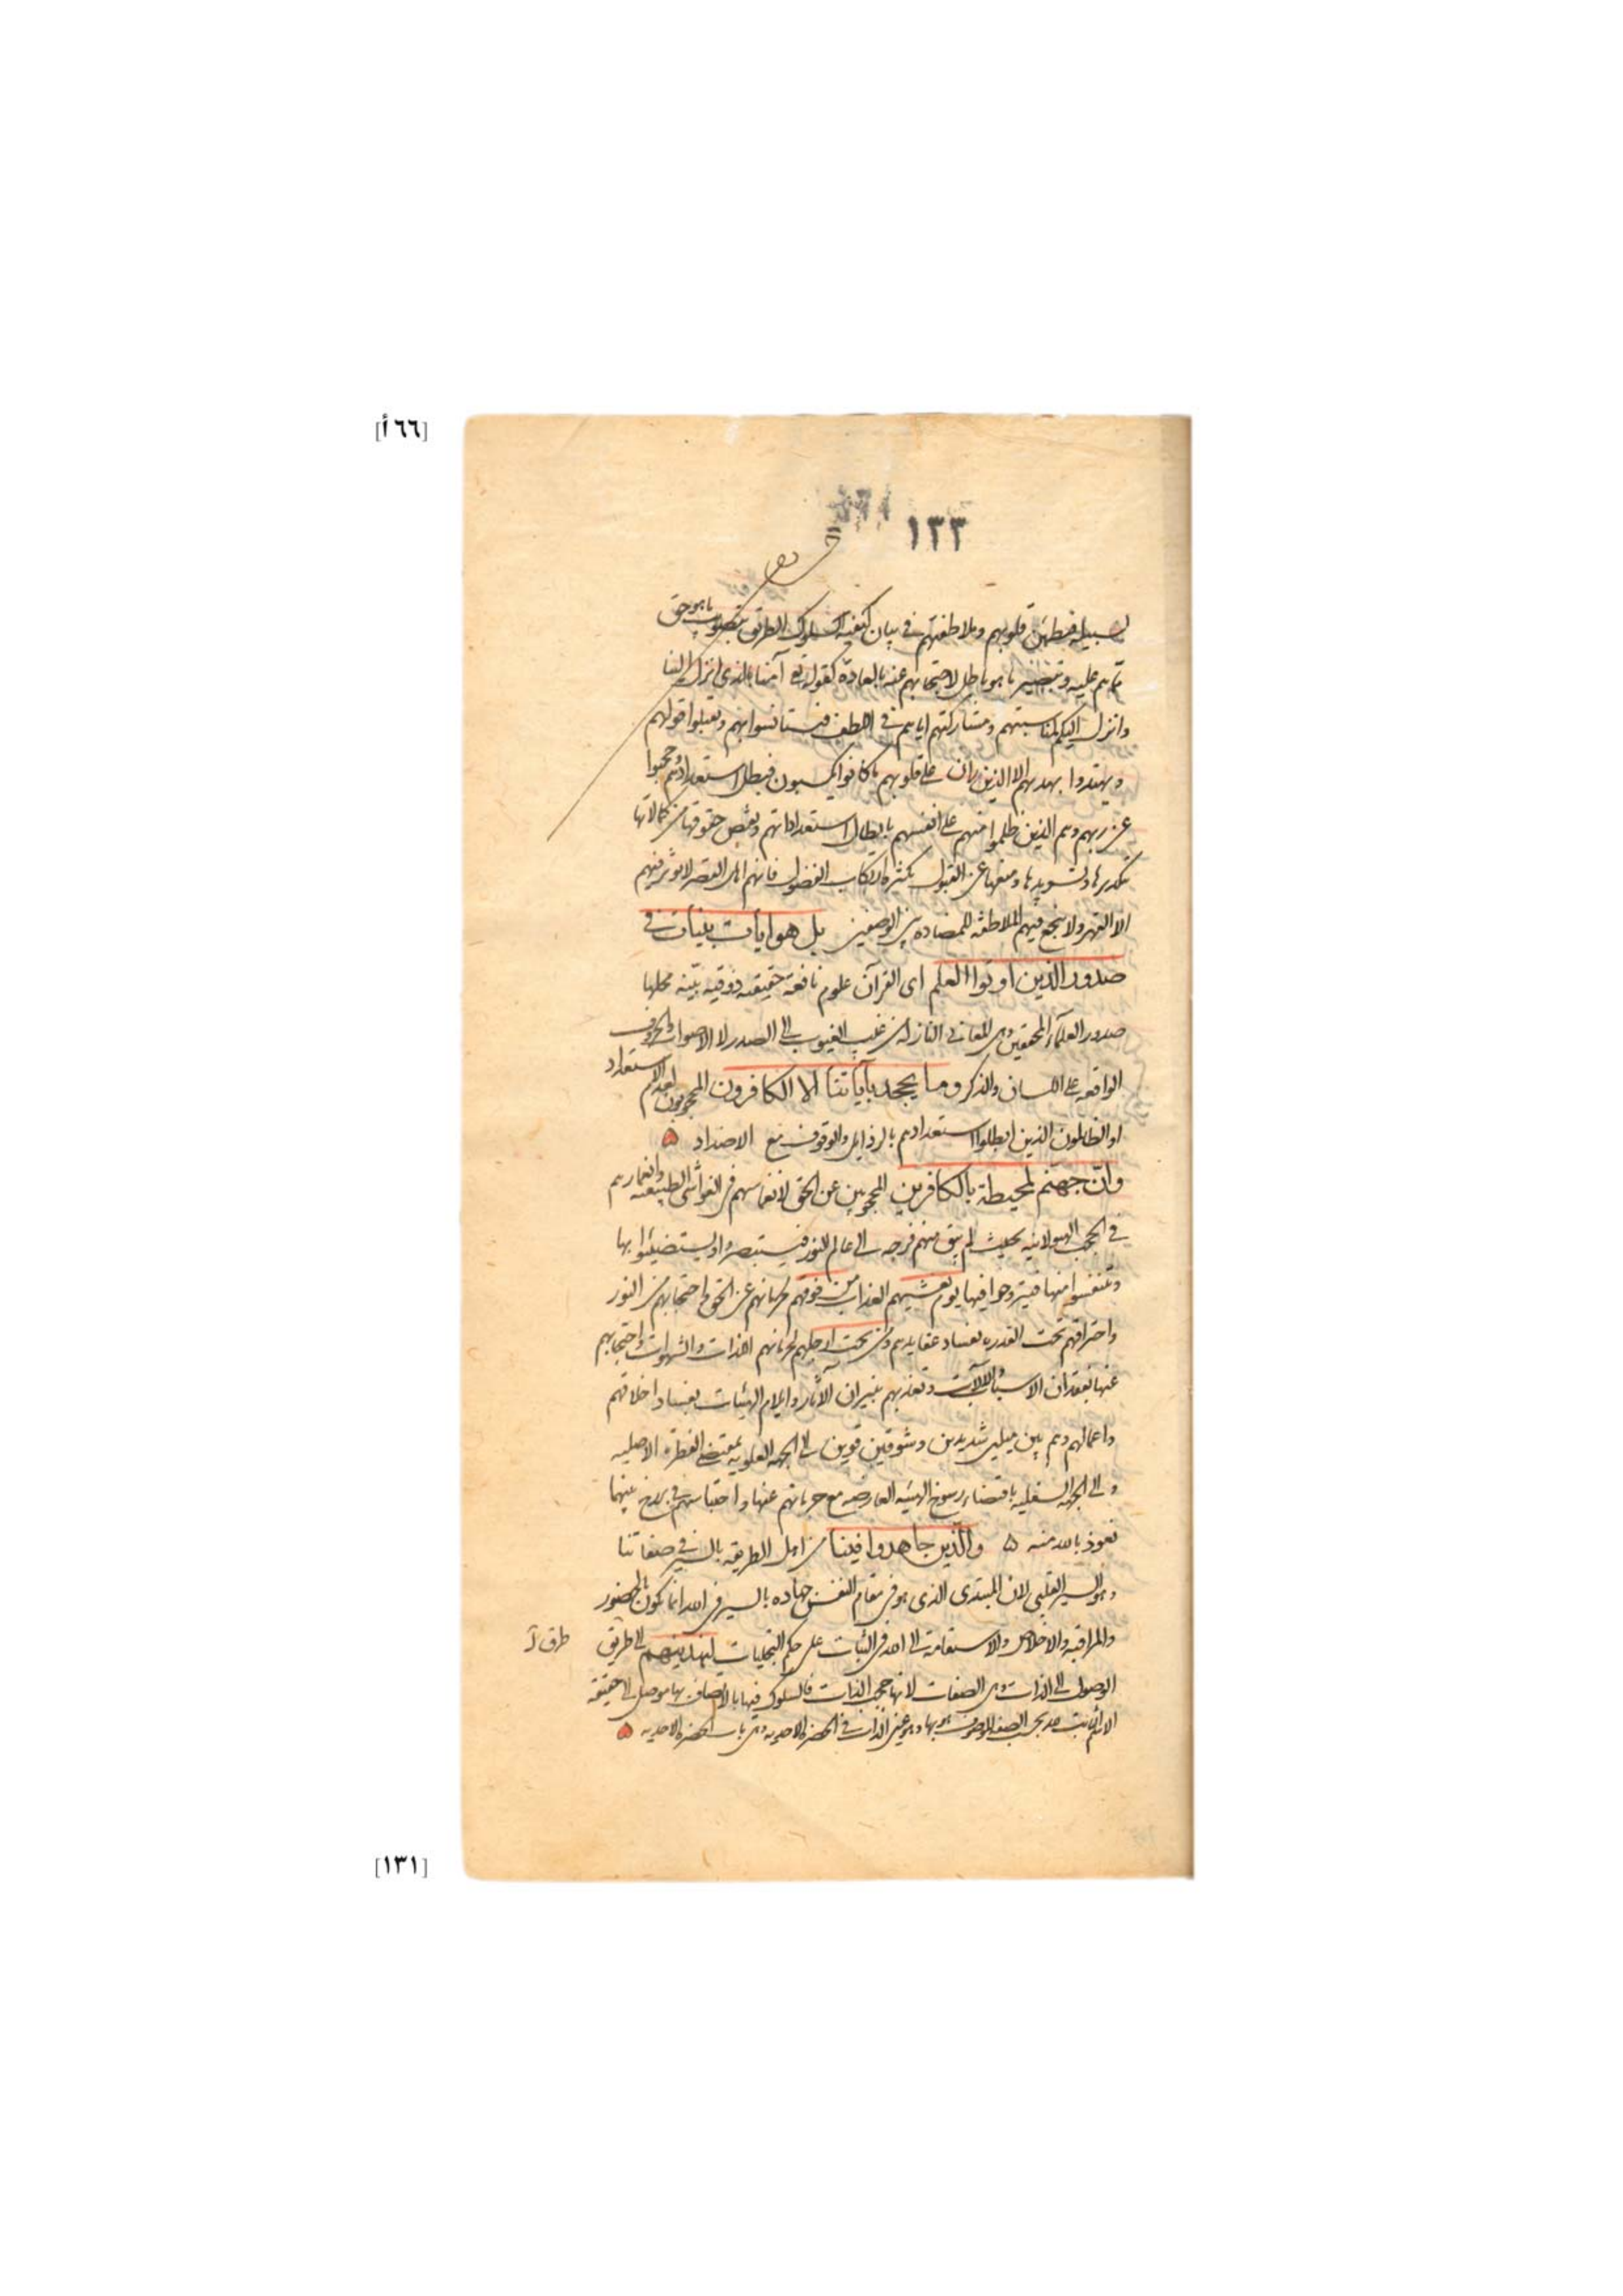 [٦٦أ]
١٣٣
لسبيله فتطمئن قلوبهم وملاطفتهم في بيان كيفية سلوك الطريق بتصويب ما هو حق
مما هم عليه وتبصير ما هو باطل لاحتجابهم عنه بالعادة كقوله تع آمنا بالذى انزل الينا
وانزل اليكم لمناسبتهم ومشاركتهم اياهم في اللطف فيستأنسوا بهم ويقبلوا قولهم
ويهتدوا بهديهم الا الذين ران على قلوبهم ما كانوا يكسبون فبطل استعدادهم وحجبوا
عن ربهم وهم الذين ظلموا منهم على انفسهم بابطال استعداداتهم ونقص حقوقها من كمالاتها
بتكديرها وتسويدها ومنعها عن القبول بكثرة ارتكاب الفضول فانهم اهل القهر لا يؤثر فيهم
الا القهر ولا تنجع فيهم الملاطفة للمضادة بين الوصفين بل هو آيات بينات في
صدور الذين اوتوا العلم اى القرآن علوم نافعة حقيقية ذوقية بينة محلها
صدور العلماء المحققين وهى المعانى النازلة من غيب الغيوب الى الصدر لا الاصوات والحروف
الواقعة على اللسان والذكر وما يجحد بآياتنا الا الكافرون المحجوبون لعدم الاستعداد
او الظالمون الذين ابطلوا استعدادهم بالرذايل والوقوف مع الاضداد ۵
وان جهنم لمحيطة بالكافرين المحجوبين عن الحق لانغماسهم في الغواشى الطبيعية وانغمارهم
في الحجب الهيولانية بحيث لم يبق منهم فرجة الى عالم النور فيستبصروا ويستضيئوا بها
ويتنفسوا منها فيتروحوا فيها يوم يغشيهم العذاب من فوقهم لحرمانهم عن الحق واحتجابهم من النور
واحتراقهم تحت القدرة بفساد عقايدهم ومن تحت ارجلهم لحرمانهم اللذات والشهوات واحتجابهم
عنها بفقدان الاسباب والآلات وتعذبهم بنيران الآثار وايلام الهيئات بفساد اخلاقهم
واعمالهم وهم بين ميلين شديدين وشوقين قويين الى الجهة العلوية بمقتضى الفطرة الاصلية
والى الجهة السفلية باقتضاء رسوخ الهيئة العارضة مع حرمانهم عنها واحتباسهم في برزخ بينهما
نعوذ بالله منه ۵ والذين جاهدوا فينا من اهل الطريقة بالسير في صفاتنا
وهو السير القلبى لان المبتدى الذى هو في مقام النفس جهاده بالسير في الله انما يكون بالحضور
والمراقبة والاخلاص والاستقامة الى الله في الثبات على حكم التجليات لنهدينهم الى طريق
طرق آ
الوصول الى الذات وهى الصفات لانها حجب الذات فالسلوك فيها بالاتصاف بها موصل الى حقيقة
الاسم الثابت له بحسب الصفة الموصوف هو بها وهو عين الذات في الحضرة الاحدية وهى باب الحضرة الاحدية ۵
[١٣١]